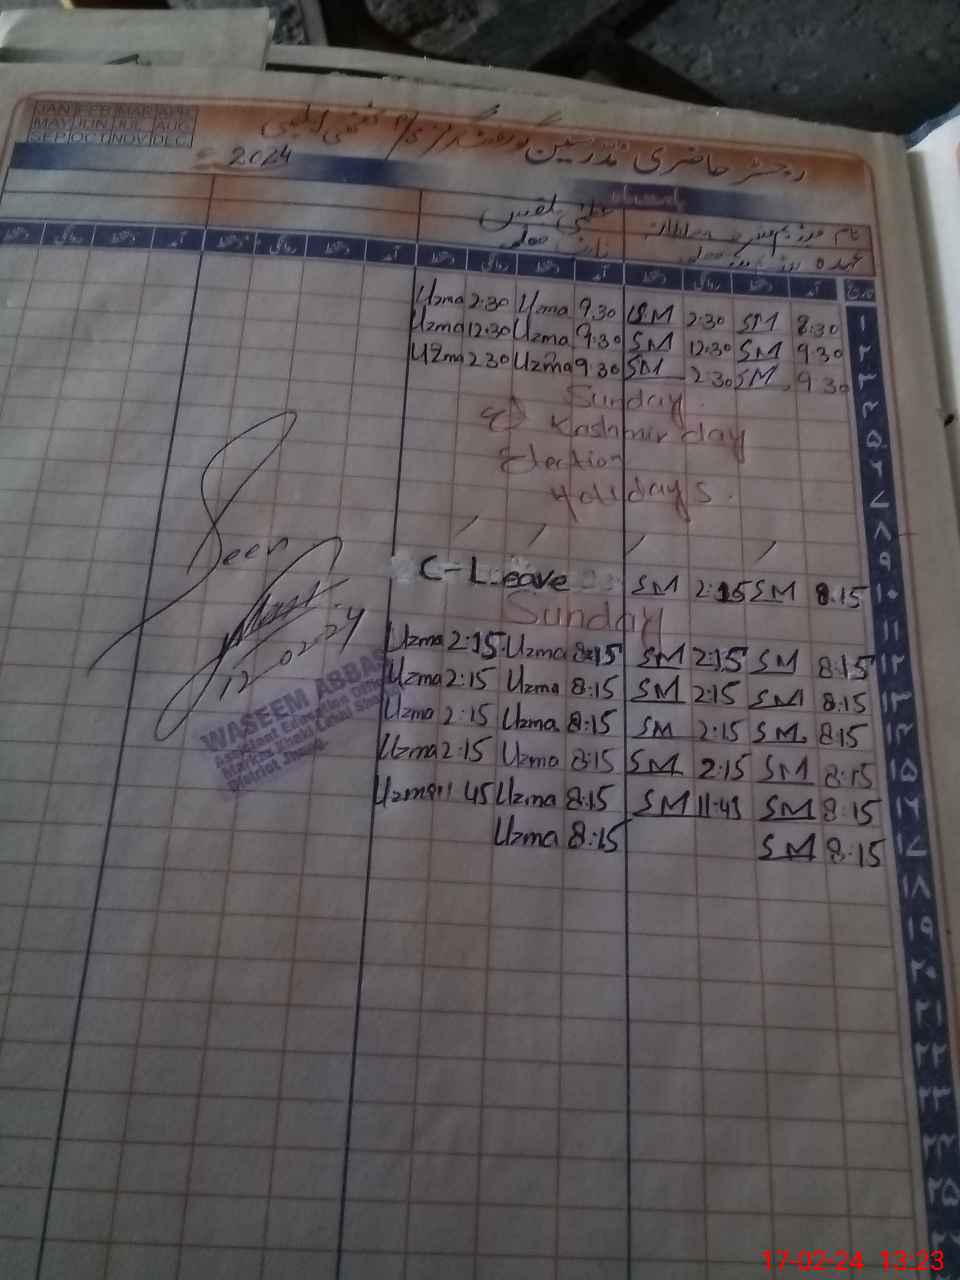 JAN FEB MAR APR
MAY JUN JUL AUG
SEP OCT NOV DEC
رجسٹر حاضری مدرسین گورنمنٹ گرلز
2024
نام
عہدہ
Uzma 2:30 Uzma 9.30 SM 2:30 SM 8:30 ۱
Uzma 12:30 Uzma 9:30 SM 12:30 SM 9:30 ۲
Uzma 2 30 Uzma 9:30 SM 2:30 SM 9 30 ۳
Sunday. ۴
Kashmir day ۵
Election ۶
Holidays. ۷
۸
۹
C-Leave SM 2:15 SM 8:15 ۱۰
Sunday ۱۱
Uzma 2:15 Uzma 8:15 SM 2:15 SM 8:15 ۱۲
Uzma 2:15 Uzma 8:15 SM 2:15 SM 8:15 ۱۳
Uzma 2:15 Uzma 8:15 SM 2:15 SM 8:15 ۱۴
Uzma 2:15 Uzma 8:15 SM 2:15 SM 8:15 ۱۵
Uzma 11 45 Uzma 8:15 SM 11:45 SM 8:15 ۱۶
Uzma 8:15 SM 8:15 ۱۷
۱۸
۱۹
۲۰
۲۱
۲۲
۲۳
۲۴
۲۵
Seen
12-02-24
WASEEM ABBAS
Assistant Education Officer
Markaz Khaki Lakhi
District Jhang.
17-02-24 13:23